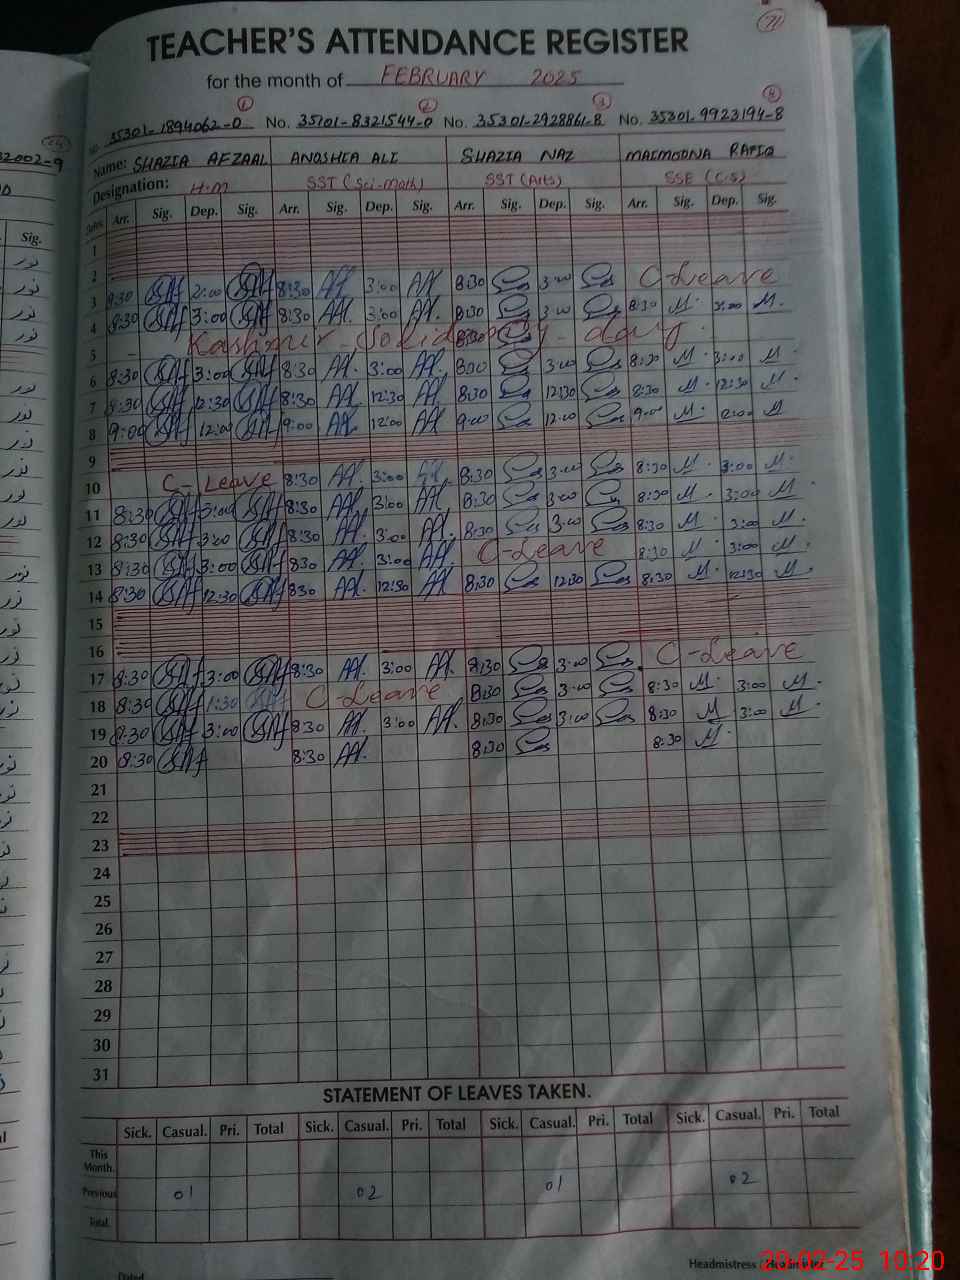 71
TEACHER'S ATTENDANCE REGISTER
for the month of FEBRUARY 2025
1 2 3 4
No. 35301-1894062-0 No. 35101-8321544-0 No. 35301-2928861-8 No. 35301-9923194-8
Name: SHAZIA AFZAAL ANOSHIA ALI SHAZIA NAZ MAIMOONA RAFIQ
Designation: H.M SST (Sci-math) SST (Arts) SSE (C.S)
Dates. Arr. Sig. Dep. Sig. Arr. Sig. Dep. Sig. Arr. Sig. Dep. Sig. Arr. Sig. Dep. Sig.
1
2
3 8:30 SAf 2:00 SAf 8:30 AA. 3:00 AA. 8:30 3:00 C-Leave
4 8:30 SAf 3:00 SAf 8:30 AA. 3:00 AA. 8:30 3:00 8:30 M. 3:00 M.
5 - Kashmir Solidarity day 8:30
6 8:30 SAf 3:00 SAf 8:30 AA. 3:00 AA. 8:30 3:00 8:30 M. 3:00 M.
7 8:30 SAf 12:30 SAf 8:30 AA. 12:30 AA. 8:30 12:30 8:30 M. 12:30 M.
8 9:00 SAf 12:00 SAf 9:00 AA. 12:00 AA. 9:00 12:00 9:00 M. M
9
10 C-Leave 8:30 AA. 3:00 AA. 8:30 3:00 8:30 M. 3:00 M.
11 8:30 SAf 3:00 SAf 8:30 AA. 3:00 AA. 8:30 3:00 8:30 M. 3:00 M.
12 8:30 SAf 3:00 SAf 8:30 AA. 3:00 AA. 8:30 3:00 8:30 M. 3:00 M.
13 8:30 SAf 3:00 SAf 8:30 AA. 3:00 AA. C-Leave 8:30 M. 3:00 M.
14 8:30 SAf 12:30 SAf 8:30 AA. 12:30 AA. 8:30 12:30 8:30 M. 12:30 M.
15
16
17 8:30 SAf 3:00 SAf 8:30 AA. 3:00 AA. 8:30 3:00 C-Leave
18 8:30 SAf 1:30 SAf C-Leave 8:30 3:00 8:30 M. 3:00 M.
19 8:30 SAf 3:00 SAf 8:30 AA. 3:00 AA. 8:30 3:00 8:30 M 3:00 M.
20 8:30 SAf 8:30 AA. 8:30 8:30 M.
21
22
23
24
25
26
27
28
29
30
31
STATEMENT OF LEAVES TAKEN.
Sick. Casual. Pri. Total Sick. Casual. Pri. Total Sick. Casual. Pri. Total Sick. Casual. Pri. Total
This Month.
Previous 01 02 01 02
Total.
Dated
Headmistress / Headmaster
20-02-25 10:20